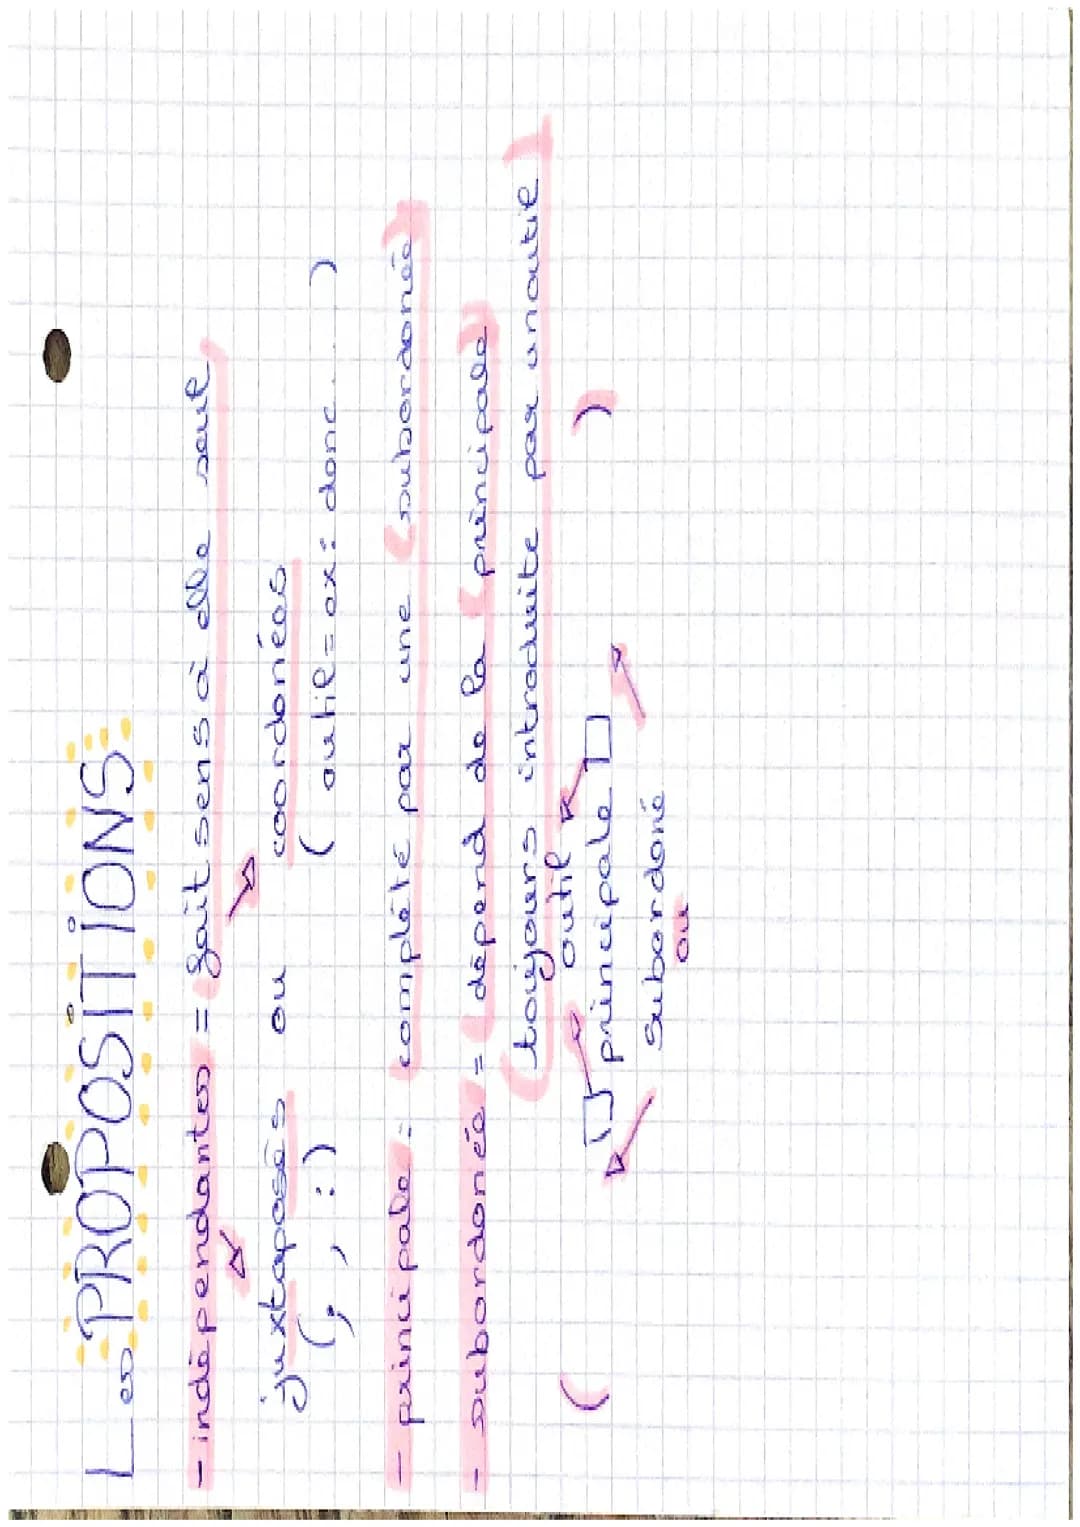 Les PROPOSITIONS
- indépendantes = fait sens à elle seule
juxtaposés ou coordonéés
(; , :) ( outil = ex: donc... )
- principale = complété par une (subordonée)
- subordonée = dépend de la (principale)
(toujours introduite par un outil)
outil
( principale )
Subordoné
ou